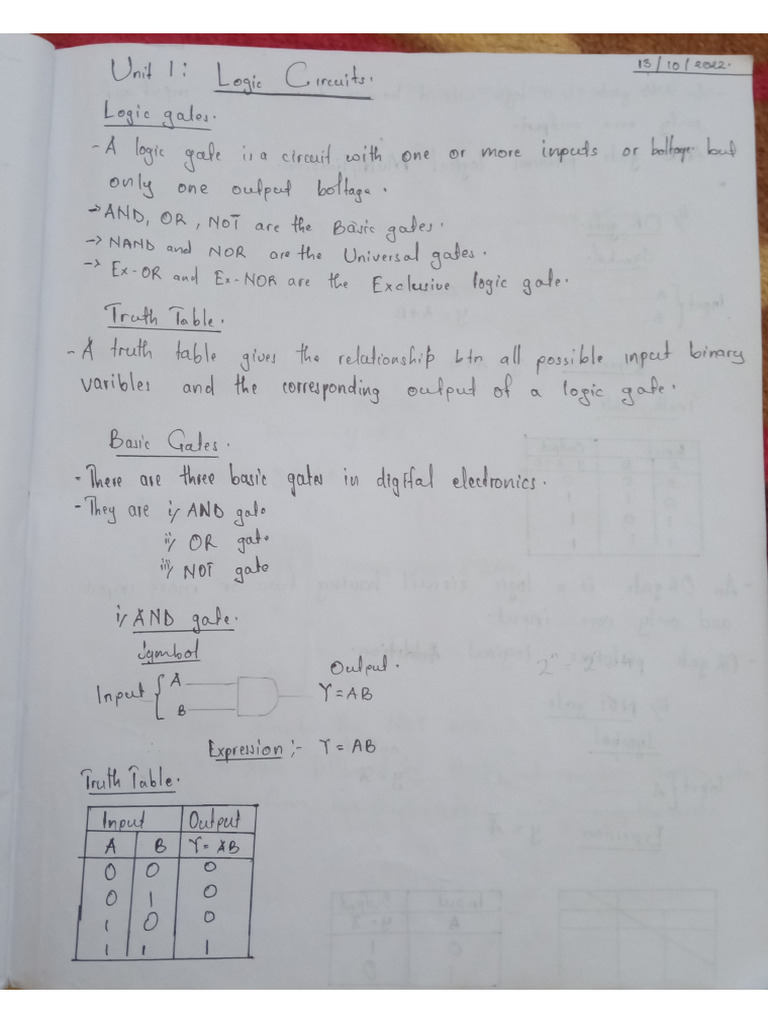 13/10/2022.
Unit 1: Logic Circuits.
Logic gates.
- A logic gate is a circuit with one or more inputs or boltage but
only one output boltage.
→ AND, OR, NOT are the Basic gates.
→ NAND and NOR are the Universal gates.
→ Ex-OR and Ex-NOR are the Exclusive logic gate.
Truth Table.
- A truth table gives the relationship btn all possible input binary
varibles and the corresponding output of a logic gate.
Basic Gates.
- There are three basic gates in digital electronics.
- They are i) AND gate
ii) OR gate
iii) NOT gate
i) AND gate.
Symbol
Output.
Input { A
B
Y = AB
Expression :- Y = AB
Truth Table.
Input Output
A B Y = AB
0 0 0
0 1 0
1 0 0
1 1 1